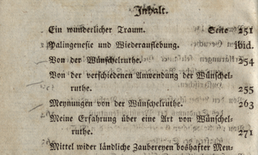 Inhalt.
Ein wunderlicher Traum. Seite 251
Palingenesie und Wiederauflebung. Ibid.
Von der Wünschelruthe. 254
Von der verschiedenen Anwendung der Wünschel-
ruthe. 255
Meynungen von der Wünschelruthe. 263
Meine Erfahrung über eine Art von Wünschel-
ruthe. 271
Mittel wider ländliche Zaubereyen boshafter Men-